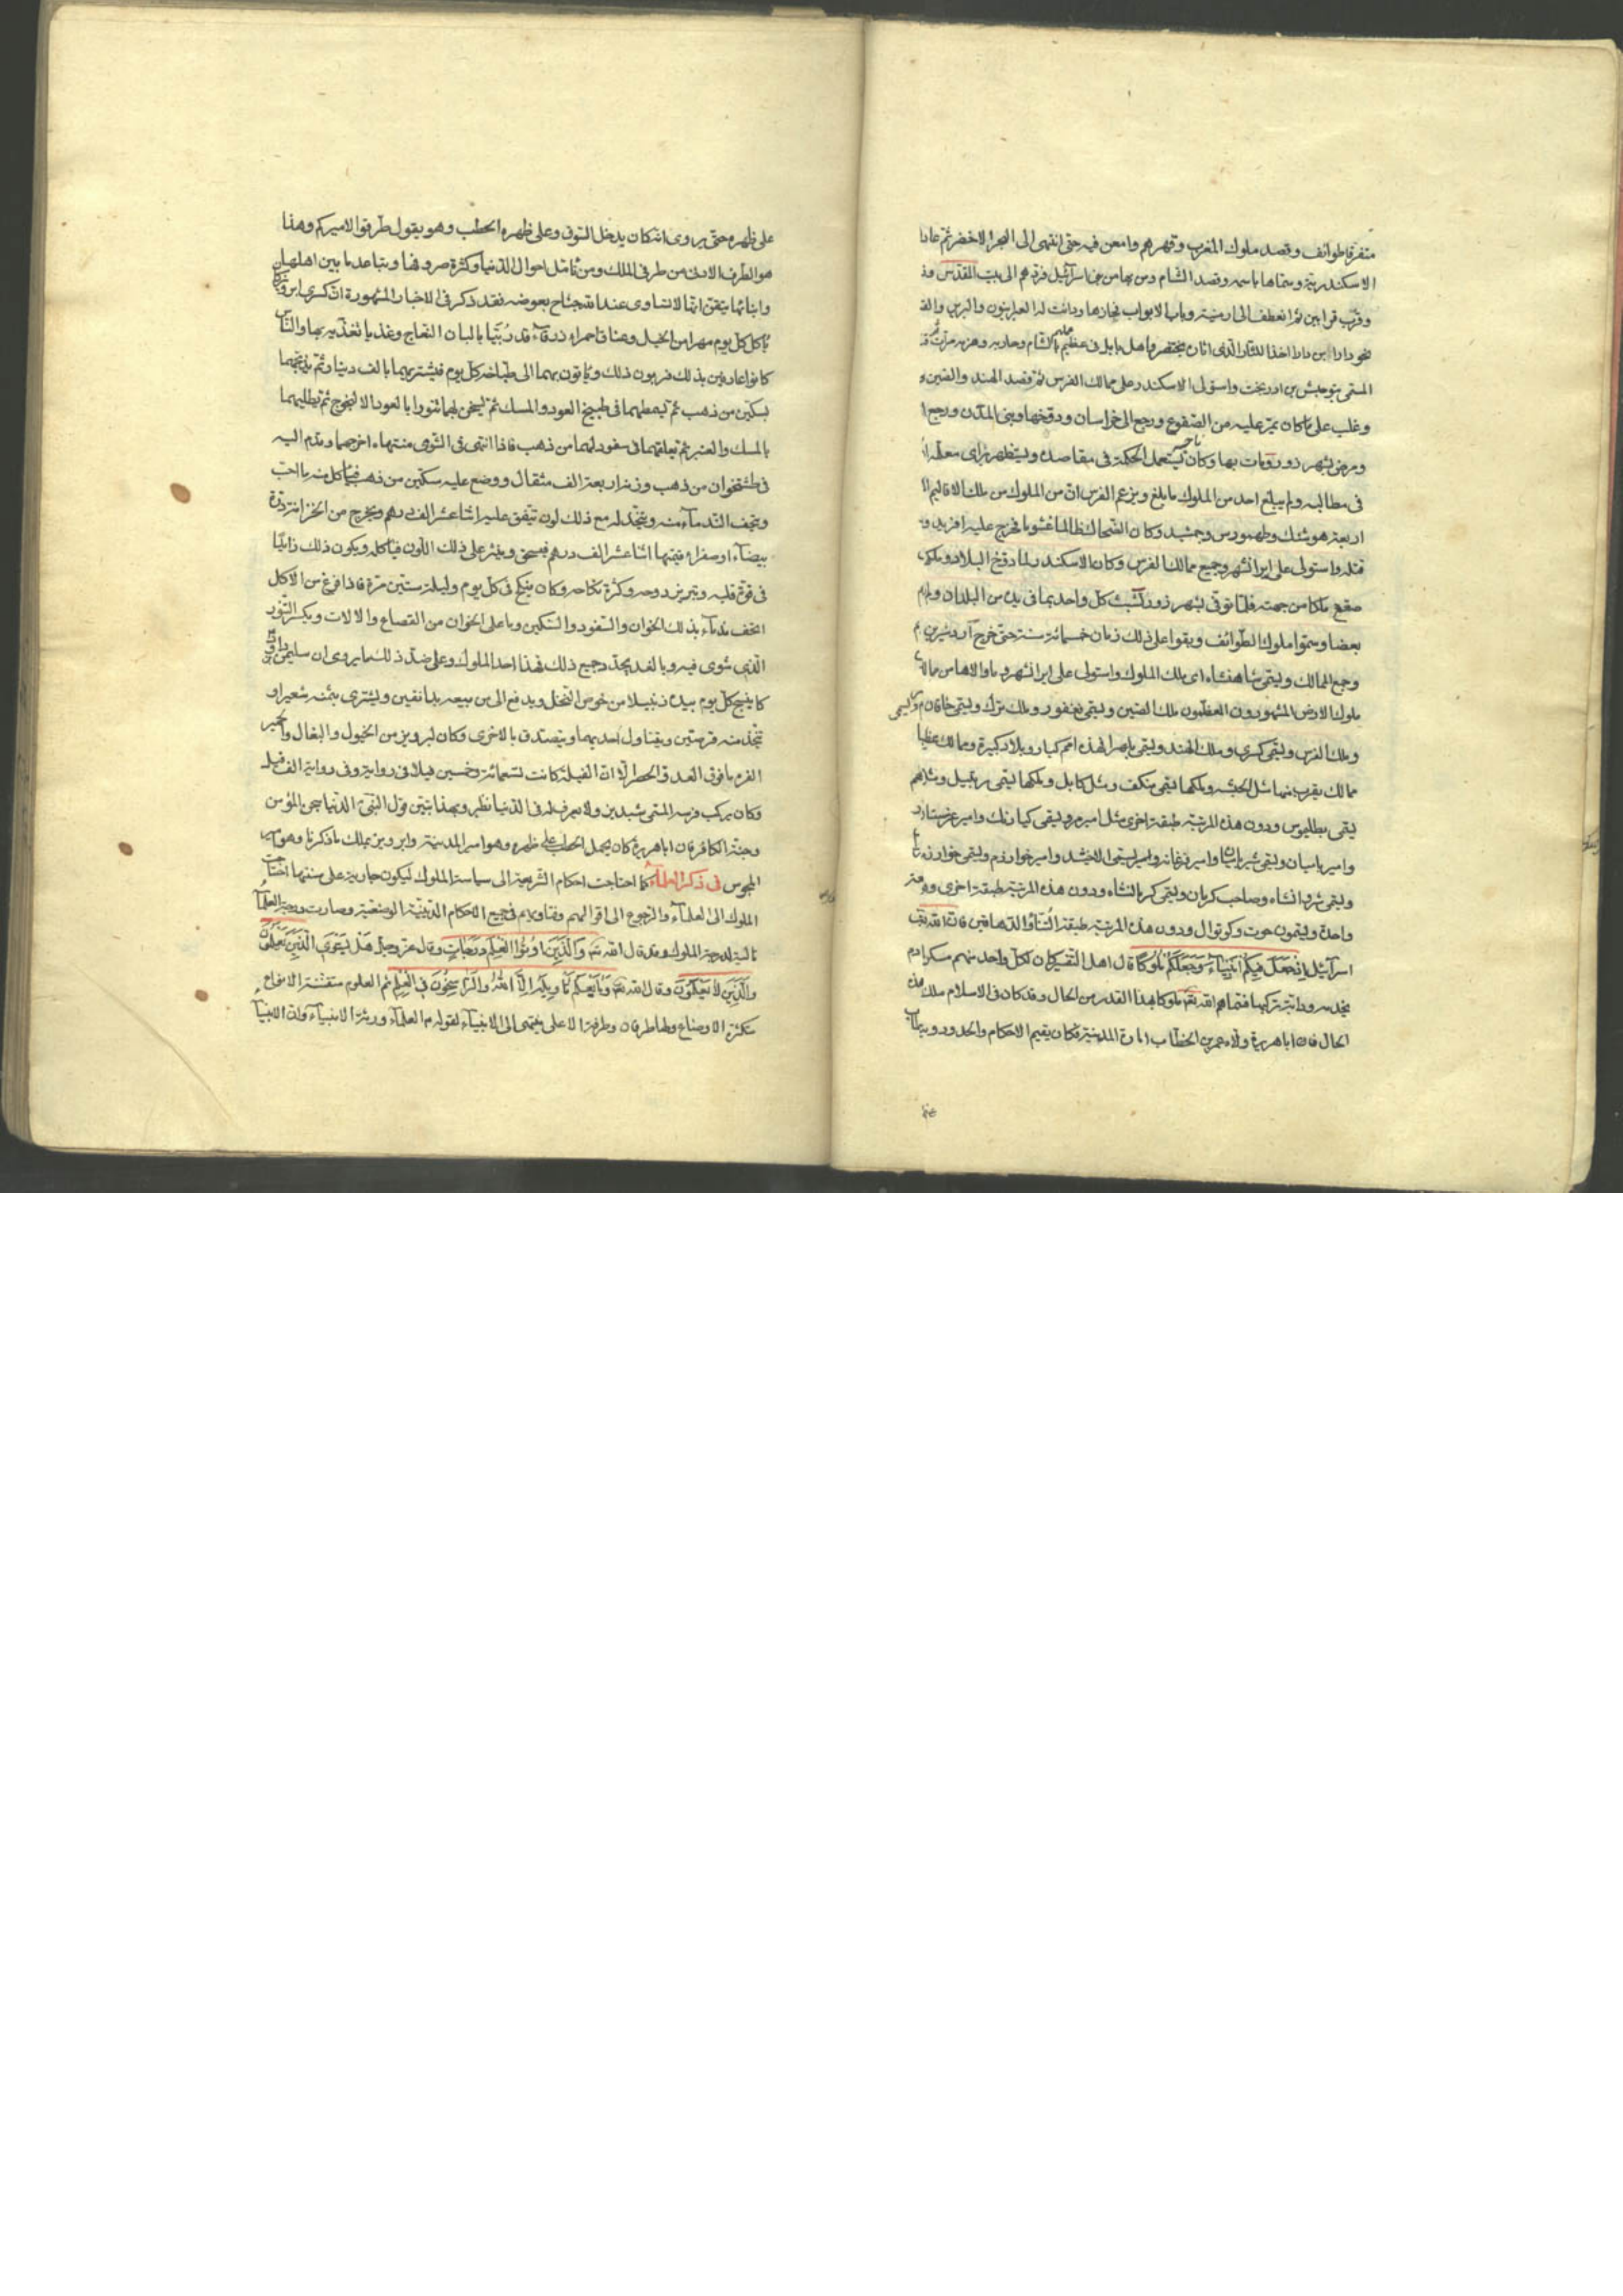 متفرقا طوائف وقصد ملوك المغرب وقهرهم وامعن فيه حتى انتهى الى البحر الاخضر ثم عاد
الاسكندرية وسماها باسمه وقصد الشام ومن بها من بنى اسرآئيل الى بيت المقدس
وقرب قرابين ثم انعطف الى ارمينية وباب الابواب فجازها ودانت له العبرانيون والبربر
نحو دارا بن دارا اخذا للثار الذى بختنصر واهل بابل فى الشام وحاربه وهزمه مرات
المسمى واستولى الاسكندر على ممالك الفرس ثم قصد الهند والصين
وغلب على ما كان يمر عليه من الصقوع ورجع الى خراسان ودوخها وبنى المدن ورجع
ومرض بشهرزور ومات بها وكان يستعمل الحكمة فى مقاصده ويستظهر براى معلمه
فى مطالبه ولم يبلغ احد من الملوك ما بلغ ويزعم الفرس ان من الملوك من ملك الاقاليم
اربعة هوشنك وطهمورس وجمشيد وكان الضحاك ظالما غشوما فخرج عليه افريدون
قتله واستولى على ايرانشهر وجميع ممالك الفرس وكان الاسكندر لما دوخ البلاد
صقع ملكا من جهته فلما توفى بشهرزور تشبث كل واحد بما فى يده من البلدان
بعضا وسموا ملوك الطوائف وبقوا على ذلك زمان خمسمائة سنة حتى خرج اردشير
وجمع الممالك ويسمى شاهنشاه اى ملك الملوك واستولى على ايرانشهر
ملوك الارض المشهورون العظمون ملك الصين ويسمى بغفور وملك ترك ويسمى خاقان
وملك الفرس ويسمى كسرى وملك الهند ويسمى لهذه امم كبار وبلاد كبيرة وممالك
ممالك يقرب منها مثل الحبشة وملكها يسمى ومثل كابل وملكها يسمى رتبيل
يسمى بطليوس ودون هذه المرتبة طبقة اخرى مثل امير
وامير باميان ويسمى شير وامير فرغانه ويسمى الاخشد وامير خوارزم ويسمى
ويسمى شروانشاه وصاحب كرمان ويسمى كرمانشاه ودون هذه المرتبة طبقة اخرى
واحدة ويسمون وكوتوال ودون هذه المرتبة طبقة والدهاقين
اسرآئيل اذ جعل فيكم انبيآء وجعلكم ملوكا قال اهل التفسير كان لكل واحد منهم
يخدمه ودابة يركبها فسماهم الله تعالى ملوكا بهذا القدر من الحال وقد كان فى الاسلام ملك
الحال فان ابا هريرة ولاه عمر بن الخطاب امارة المدينة فكان يقيم الاحكام والحدود
على ظهره حتى يروى انه كان يدخل السوق وعلى ظهره الحطب وهو يقول طرقوا لاميركم وهذا
هو الطرف الادنى من طرفى الملك ومن تامل احوال الدنيا وكثرة صروفها وتباعد ما بين اهلها
وابنائها تيقن انها لا تساوى عند الله جناح بعوضة فقد ذكر فى الاخبار المشهورة ان كسرى ابرويز كان
ياكل كل يوم مهرا من الخيل وعناقا حمراء زرقاء قد ربيا بالبان النعاج وغذيا والناس
كانوا عارفين بذلك فيربون ذلك وياتون بهما الى طباخه كل يوم فيشتريهما بالف دينار ثم يذبحهما
بسكين من ذهب ثم يسمطهما فى طبيخ العود والمسك ثم يسخن لهما تنورا بالعود ثم يطليهما
بالمسك والعنبر ثم يعلقهما فى سفود لهما من ذهب فاذا انتهى فى الشوى منتهاه اخرجهما وقدم اليه
فى طشتخوان من ذهب وزنه اربعة الف مثقال ووضع عليه سكين من ذهب فياكل منه ما احب
ويتحف الندمآء منه ويتخذ له مع ذلك لون ينفق عليه اثنا عشر الف درهم ويخرج من الخزانة درة
بيضآء او صفراء قيمتها اثنا عشر الف درهم فيسحق وينثر على ذلك اللون فياكله ويكون ذلك زائدا
فى قوة قلبه وتبريز روحه وكثرة نكاحه وكان ينكح فى كل يوم وليلة ستين مرة فاذا فرغ من الاكل
اتحف ندمآءه بذلك الخوان والسفود والسكين وما على الخوان من القصاع والالات ويكسر التنور
الذى شوى فيه وبالغد يجدد جميع ذلك فهذا احد الملوك وعلى ضد ذلك ما يروى ان سليمن بن داود
كان ينسج كل يوم بيده زنبيلا من خوص النخل ويدفع الى من يبيعه بدانقين ويشترى بثمنه شعيرا و
يتخذ منه قرصتين ويتناول احديهما ويتصدق بالاخرى وكان لبرويز من الخيول والبغال والحمير
الفره ما فوق العد والحصر الا ان الفيلة كانت تسعمائة وخمسين فيلا فى رواية وفى رواية الف فيل
وكان يركب فرسه المسمى شبديز ولا يعرف له فى الدنيا نظير وبهذا يتبين قول النبى الدنيا سجن المؤمن
وجنة الكافر فان ابا هريرة كان يحمل الحطب على ظهره وهو امير المدينة وابرويز يملك ما ذكرنا وهو من
المجوس فى ذكر العلمآء كما احتاجت احكام الشريعة الى سياسة الملوك ليكون جارية على سننها احتاجت
الملوك الى العلمآء والرجوع الى اقوالهم وفتاويهم فى جميع الاحكام الدينية الوضعية وصارت درجة العلمآء
تالية لدرجة الملوك وقد قال الله تع والذين اوتوا العلم درجات وقال عز وجل هل يستوى الذين يعلمون
والذين لا يعلمون وقال الله تع وما يعلم تأويله الا الله والراسخون فى العلم ثم العلوم متفننة الانواع
متكثرة الاوضاع ولها طرفان وطرفها الاعلى ينتهى الى الانبيآء لقوله م العلمآء ورثة الانبيآء ولان الانبيآ